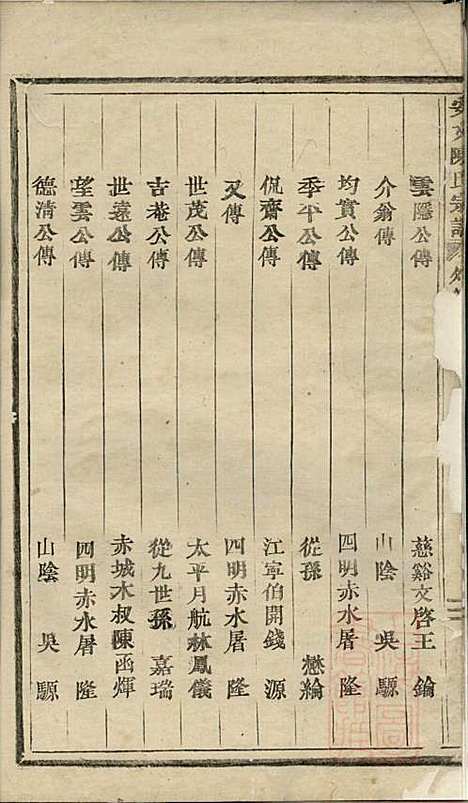 安文陳氏宗譜
雲隱公傳 慈谿文啓王錀
介翁傳 山陰吳驃
均實公傳 四明赤水屠隆
季平公傳 從孫懋綸
侃齋公傳 江寧伯開錢源
又傳 四明赤水屠隆
世茂公傳 太平月航林鳳儀
吉菴公傳 從九世孫嘉瑞
世遠公傳 赤城木叔陳函煇
望雲公傳 四明赤水屠隆
德清公傳 山陰吳驃